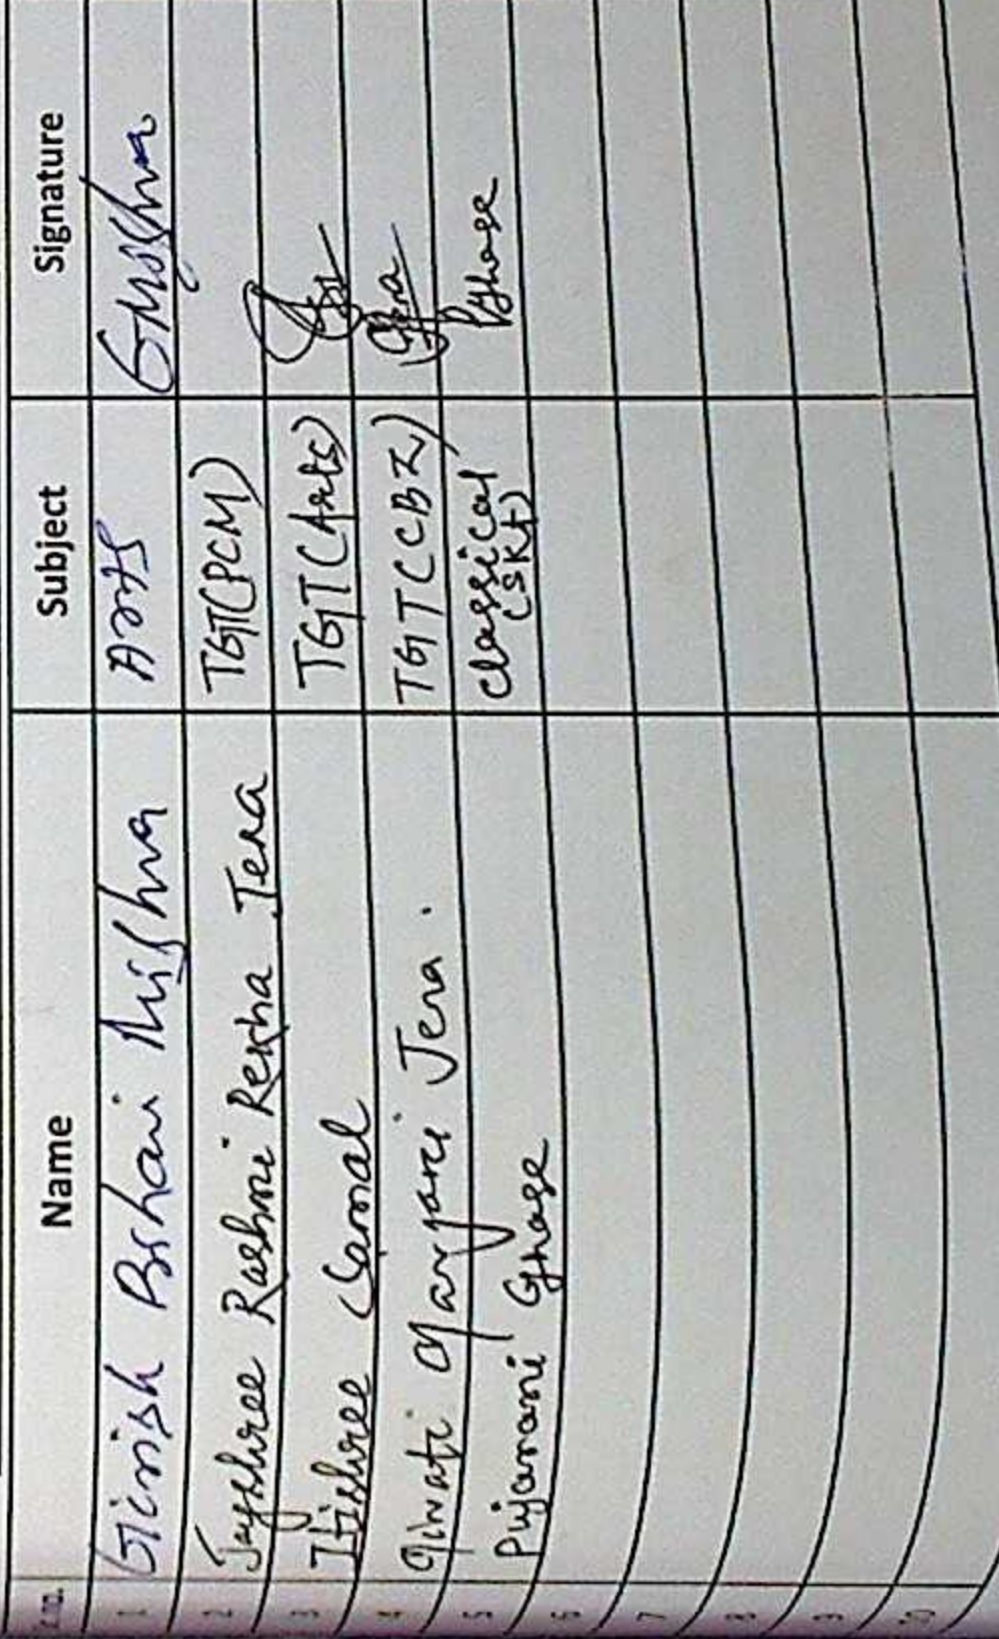 S.no. Name Subject Signature
1 Girish Bihari Mishra Arts GMishra
2 Jayshree Rashmi Rekha Jena TGT(PCM)
3 Itishree Samal TGT (Arts)
4 Manjari Jena. TGT (CBZ) Jena
5 Pujarani Ghose Classical (SKt) PGhose
6
7
8
9
10